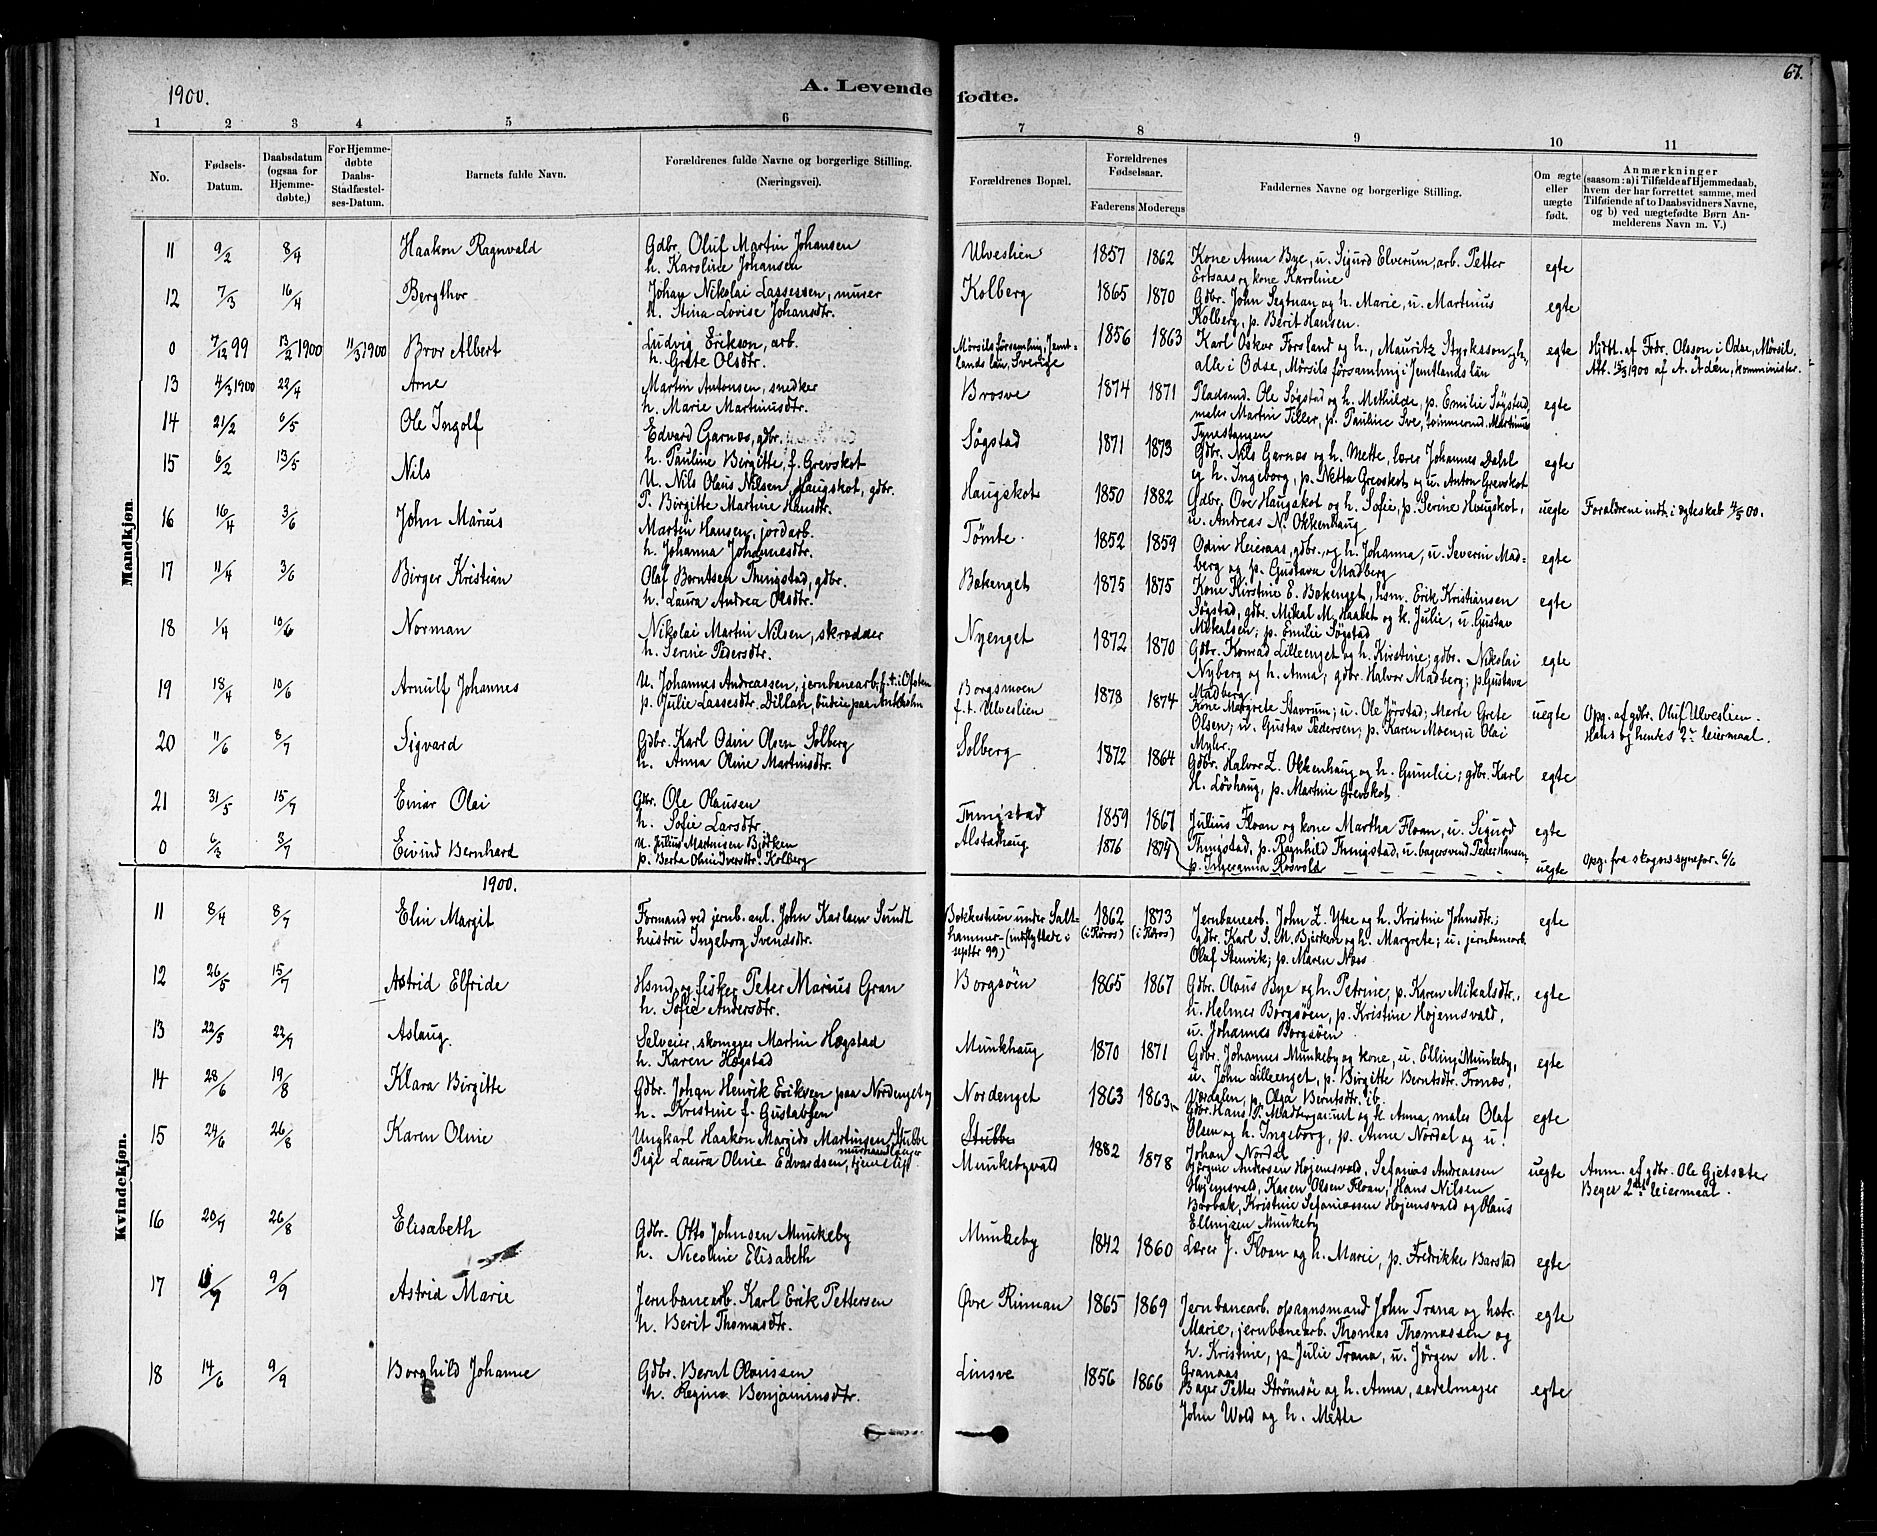 1900.
A. Levende fødte.
67.
1 2 3 4 5 6 7 8 9 10 11
No.
Fødsels-Datum.
Daabsdatum (ogsaa for Hjemme-døbte.)
For Hjemme-døbte Daabs-Stadfæstel-ses-Datum.
Barnets fulde Navn.
Forældrenes fulde Navne og borgerlige Stilling. (Næringsvei).
Forældrenes Bopæl.
Forældrenes Fødselsaar.
Faderens Moderens
Faddernes Navne og borgerlige Stilling.
Om ægte eller uægte født.
Anmærkninger (saasom: a) i Tilfælde af Hjemmedaab, hvem der har forrettet samme, med Tilføiende af to Daabsvidners Navne, og b) ved uægtefødte Børn An-melderens Navn m. V.)
Mandkjøn
11 9/2 8/4 Haakon Ragnvald
Gdbr. Oluf Martin Johansen
h. Karoline Johansen
Ulveslien 1857 1862
Kone Anna Bye, u. Sigurd Elverum, arb. Petter
Ertsaas og kone Karoline
egte
12 7/3 16/4 Bergthor
Johan Nikolai Lassessen, murer
h. Stina Lovise Johansdtr.
Kolberg 1865 1870
Gdbr. John Segtnan og h. Marie, u. Martinus
Kolberg, p. Berit Hansen.
egte
0 7/12 99 13/2 1900 11/3 1900 Bror Albert
Ludvig Erikson, arb.
h. Grete Olsdtr.
Mørsils församling, Jemt-
lands län, Sverige
1856 1863
Karl Oskar Forsland og h., Mauritz Stycksson og h.,
alle i Odse, Mörsils församling i Jemtlands län
egte
Hjdbt. af Frdr. Olsson i Odse, Mörsil.
Att. 15/3 1900 af A. Adén, komminister.
13 4/3 1900 22/4 Arne
Martin Antonsen, snedker
h. Marie Martinusdtr.
Brosve 1874 1871
Pladsmd. Ole Søgstad og h. Methilde, p. Emilie Søgstad,
maler Martin Tiller, p. Pauline Sve, tømmermd. Martinus
Tynestangen
egte
14 21/2 6/5 Ole Ingolf
Edvard Garnæs, gdbr.
h. Pauline Birgitte, f. Grevskot
Søgstad 1871 1873
Gdbr. Nils Garnæs og h. Mette, lærer Johannes Dahl
og h. Ingeborg, p. Netta Grevskot og u. Anton Grevskot
egte
15 6/2 13/5 Nils
U. Nils Olaus Nilsen Haugskot, gdbr.
P. Birgitte Martine Hansdtr.
Haugskot 1850 1882
Gdbr. Ove Haugskot og h. Sofie, p. Serine Haugskot,
u. Andreas N. Okkenhaug
uegte
Forældrene indtr. i egteskab 4/5 00.
16 16/4 3/6 John Marius
Martin Hansen, jordarb.
h. Johanna Johannesdtr.
Tømte 1852 1859
Odin Heieraas, gdbr., og h. Johanna, u. Severin Mad-
berg og p. Gustava Madberg
egte
17 11/4 3/6 Birger Kristian
Olaf Berntsen Thingstad, gdbr.
h. Laura Andrea Olsdtr.
Bakenget 1875 1875
Kone Kirstine E. Bakenget, hsm. Erik Kristiansen
Søgstad, gdbr. Mikal M. Haaket og h. Julie, u. Gustav
Mikalsen; p. Emilie Søgstad
egte
18 1/4 10/6 Norman
Nikolai Martin Nilsen, skrædder
h. Serine Pedersdtr.
Nyenget 1872 1870
Gdbr. Konrad Lilleenget og h. Kirstine; gdbr. Nikolai
Nyberg og h. Anna; gdbr. Halvor Madberg; p. Gustava
Madberg
egte
19 18/4 10/6 Arnulf Johannes
U. Johannes Andreassen, jernbanearb., f. t. i Ofoten
p. Julie Lassesdtr. Dillan, budeie paa
Borgsmoen
f. t. Ulveslien
1878 1874
Kone Margrete Stavrum; u. Ole Jørstad; Marte Grete
Olsen; u. Gustav Pedersen; p. Karen Moen; u Olai
Myhr.
uegte
Opg. af gdbr. Oluf Ulveslien.
Hans og hendes 2n leiermaal.
20 11/6 8/7 Sigvard
Gdbr. Karl Odin Olsen Solberg
h. Anna Oline Martinsdtr.
Solberg 1872 1864
Gdbr. Halvor Z. Okkenhaug og h. Gunelie; gdbr. Karl
H. Løvhaug, p. Martine Grevskot
egte
21 31/5 15/7 Einar Olai
Gdbr. Ole Olausen
h. Sofie Larsdtr.
Thingstad 1859 1867
Julius Floan og kone Martha Floan, u. Sigurd
Thingstad, p. Ragnhild Thingstad, u. bagersvend Peder Hansen
p. Ingeranna Rosvold
egte
0 6/3 3/7 Eivind Bernhard
U. Julius Martinsen Bjørken
p. Berta Oline Iversdtr. Kolberg
Alstadhaug 1876 1874
uegte
Opg. fra skogns sognepr. 6/6
1900.
Kvindekjøn.
11 8/4 8/7 Elin Margit
Formand ved jernb. anl. John Karlsen Sundt
hustru Ingeborg Svendsdtr.
Bakkestuen under Salt-
hammer (indflyttede i
septbr 99)
1862 (i Røros) 1873 (i Røros)
Jernbanearb. John Z. Ytre og h. Kristine Johnsdtr.;
gdbr. Karl S. M. Bjerken og h. Margrete; u. jernbanearb.
Olaf Stenvik; p. Maren Næss
egte
12 26/5 15/7 Astrid Elfride
Hsmd. og fisker Peter Marius Gran
h. Sofie Andersdtr.
Borgsøen 1865 1867
Gdbr. Olaus Bye og h. Petrine, p. Karen Mikalsdtr.,
u. Helmer Borgsøen, p. Kristine Højemsvald,
u. Johannes Borgsøen
egte
13 22/5 22/7 Aslaug.
Selveier, skomager Martin Hægstad
h. Karen Hægstad
Munkhaug 1870 1871
Gdbr. Johannes Munkeby og kone, u. Elling Munkeby,
u. John Lilleenget, p. Birgitte Berntsdtr. Trønæs,
Værdalen, p. Olga Berntsdtr. ib.
egte
14 28/6 19/8 Klara Birgitte
Gdbr. Johan Henrik Eriksen paa Nordenget og
h. Kristine f. Gustafsen
Nordenget 1863 1863
Gdbr. Hans P. Madbergaunet og h. Anna, maler Olaf
Olsen og h. Ingeborg, p. Anne Nordal og u.
Johan Nordal
egte
15 24/6 26/8 Karen Oline
Ungkarl Haakon Margido Martinsen Stubbe
murhandlanger
Pige Laura Oline Edvardsen, tjenestepi.
Stubbe
Munkebyvald
1882 1878
Jørgine Andersen Højemsvald, Sefanias Andreassen
Højemsvald, Karen Olsen Floan, Hans Nilsen
Barbak, Kristine Sefaniassen Højemsvald og Olaus
Ellingsen Munkeby
uegte
Anm. af gdbr. Ole Gjetsæter
Beges 2det leiermaal.
16 20/7 26/8 Elisabeth
Gdbr. Otto Johnsen Munkeby
h. Nicoline Elisabeth
Munkeby 1842 1860
Lærer J. Floan og h. Marie, p. Fredrikke Barstad
egte
17 11/7 9/9 Astrid Marie
Jernbanearb. Karl Erik Pettersen
h. Berit Thomasdtr.
Øvre Rinnan 1865 1869
Jernbanearb. opsynsmand John Trana og hstr.
Marie, jernbanearb. Thomas Thomassen og
h. Kristine, p. Julie Trana, u. Jørgen M.
Granaas
egte
18 14/6 9/9 Borghild Johanne
Gdbr. Bernt Olaussen
h. Regina Benjaminsdtr.
Linsve 1856 1866
Bager Petter Strömsöe og h. Anna, sadelmager
John Wold og h. Mette
egte